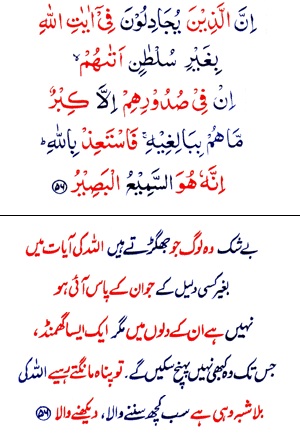 اِنَّ الَّذِيْنَ يُجَادِلُوْنَ فِيْۤ اٰيٰتِ اللّٰهِ
بِغَيْرِ سُلْطٰنٍ اَتٰىهُمْ ۙ
اِنْ فِيْ صُدُوْرِهِمْ اِلَّا كِبْرٌ
مَّا هُمْ بِبَالِغِيْهِ ۚ فَاسْتَعِذْ بِاللّٰهِ ؕ
اِنَّهٗ هُوَ السَّمِيْعُ الْبَصِيْرُ ﴿۵۶﴾
بے شک وہ لوگ جو جھگڑتے ہیں اللہ کی آیات میں
بغیر کسی دلیل کے جو ان کے پاس آئی ہو
نہیں ہے ان کے دلوں میں مگر ایک ایسا گھمنڈ،
جس تک وہ کبھی نہیں پہنچ سکیں گے۔ تو پناہ مانگتے رہیے اللہ کی
بلاشبہ وہی ہے سب کچھ سننے والا، دیکھنے والا ﴿۵۶﴾